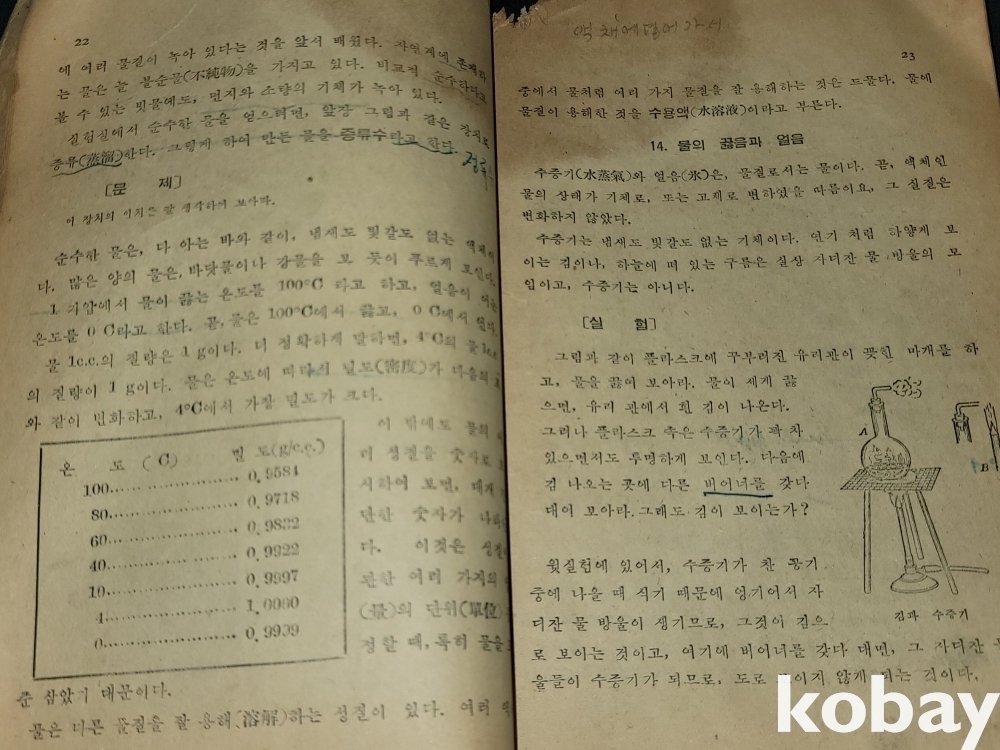 22
에 여러 물질이 녹아 있다는 것을 앞서 배웠다. 자연계에 존재하
는 물은 늘 불순물(不純物)을 가지고 있다. 비교적 순수하다고
볼 수 있는 빗물에도, 먼지와 소량의 기체가 녹아 있다.
실험실에서 순수한 물을 얻으려면, 앞장 그림과 같은 장치로
증류(蒸溜)한다. 그렇게 하여 만든 물을 증류수라고 한다.
[문 제]
이 장치의 이치를 잘 생각하여 보아라.
순수한 물은, 다 아는 바와 같이, 냄새도 빛갈도 없는 액체이
다. 많은 양의 물은, 바닷물이나 강물을 보 듯이 푸르게 보인다.
1 기압에서 물이 끓는 온도를 100°C 라고 하고, 얼음이 어는
온도를 0 C라고 한다. 곧, 물은 100°C에서 끓고, 0 C에서 언다.
물 1c.c.의 질량은 1 g이다. 더 정확하게 말하면, 4°C의 물 1c.c.
의 질량이 1 g이다. 물은 온도에 따라서 밀도(密度)가 다음의 표
와 같이 변화하고, 4°C에서 가장 밀도가 크다.
온 도 (C) 밀 도(g/c.c.)
100 0.9584
80 0.9718
60 0.9832
40 0.9922
10 0.9997
4 1.0000
0 0.9999
이 밖에도 물의
러 성질을 숫자로
시하여 보면, 대개
단한 숫자가 나타
다. 이것은 성질
관한 여러 가지의
(量)의 단위(單位)
정할 때, 특히 물을
준 삼았기 때문이다.
물은 다른 물질을 잘 용해(溶解)하는 성질이 있다. 여러 액
액체에열에가서
23
중에서 물처럼 여러 가지 물질을 잘 용해하는 것은 드물다. 물에
물질이 용해한 것을 수용액(水溶液)이라고 부른다.
14. 물의 끓음과 얼음
수증기(水蒸氣)와 얼음(氷)은, 물질로서는 물이다. 곧, 액체인
물의 상태가 기체로, 또는 고체로 변하였을 따름이요, 그 실질은
변화하지 않았다.
수증기는 냄새도 빛갈도 없는 기체이다. 연기 처럼 하얗게 보
이는 김이나, 하늘에 떠 있는 구름은 실상 자디잔 물 방울의 모
임이고, 수증기는 아니다.
[실 험]
그림과 같이 플라스크에 꾸부러진 유리관이 꽂힌 마개를 하
고, 물을 끓여 보아라. 물이 세게 끓
으면, 유리 관에서 흰 김이 나온다.
그러나 플라스크 속은 수증기가 꽉 차
있으면서도 투명하게 보인다. 다음에
김 나오는 곳에 다른 버어너를 갖다
대어 보아라. 그래도 김이 보이는가?
A
B
김과 수증기
윗실험에 있어서, 수증기가 찬 공기
중에 나올 때 식기 때문에 엉기어서 자
디잔 물 방울이 생기므로, 그것이 김으
로 보이는 것이고, 여기에 버어너를 갖다 대면, 그 자디잔 물
울들이 수증기가 되므로, 도로 보이지 않게 되는 것이다.
kobay